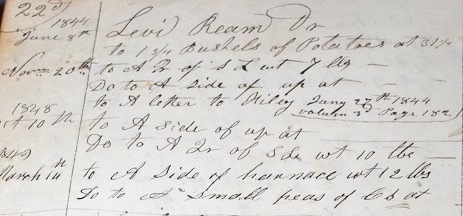 22d
1844
June 8th
Levi Ream Dr
to 1 3/4 Bushels of Potatoes at 31 1/4
Nov 20th to A 2r of S L wt 7 lbs
Do to A Side of up at
to A letter to Hiley Jany 27th 1844
volumn 3d Page 182
1848
10th to A Side of up at
Do to A 2r of S Le wt 10 lbs
March 14th to A Side of harnace wt 12 lbs
Do to A Small peas of at